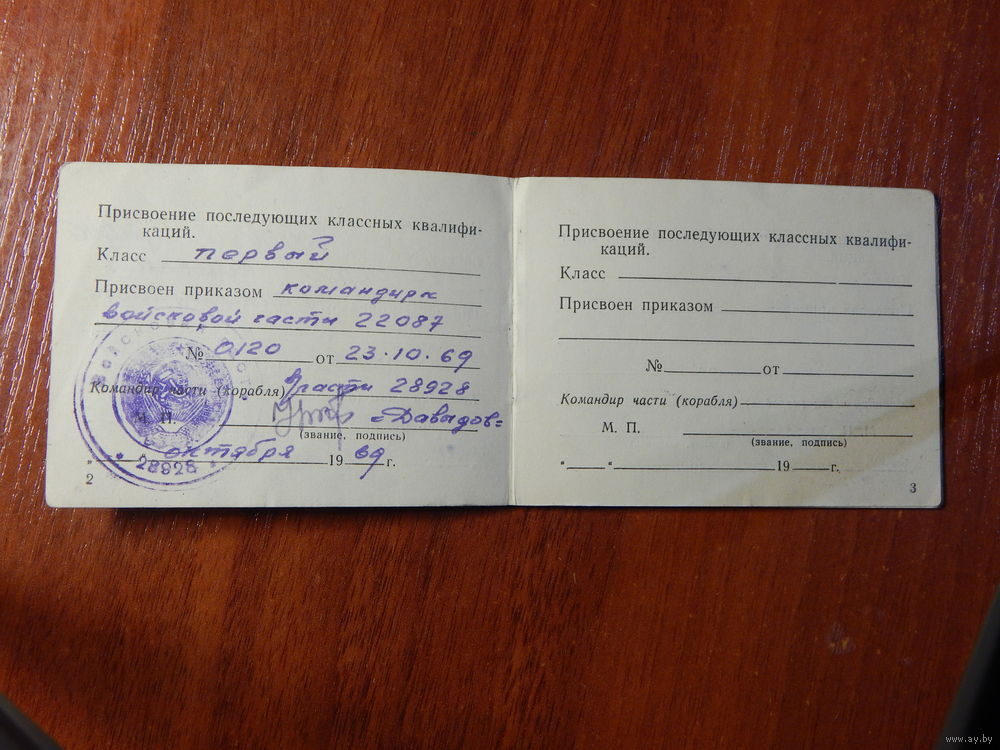 Присвоение последующих классных квалифи-
каций.
Класс первый
Присвоен приказом командира
войсковой части 22087
№ 0120 от 23.10.69
Командир части (корабля) в/части 28928
М. П. Давыдов
(звание, подпись)
" " октября 1969 г.
28928
2
Присвоение последующих классных квалифи-
каций.
Класс
Присвоен приказом
№ от
Командир части (корабля)
М. П.
(звание, подпись)
" " 19 г.
3
www.ay.by